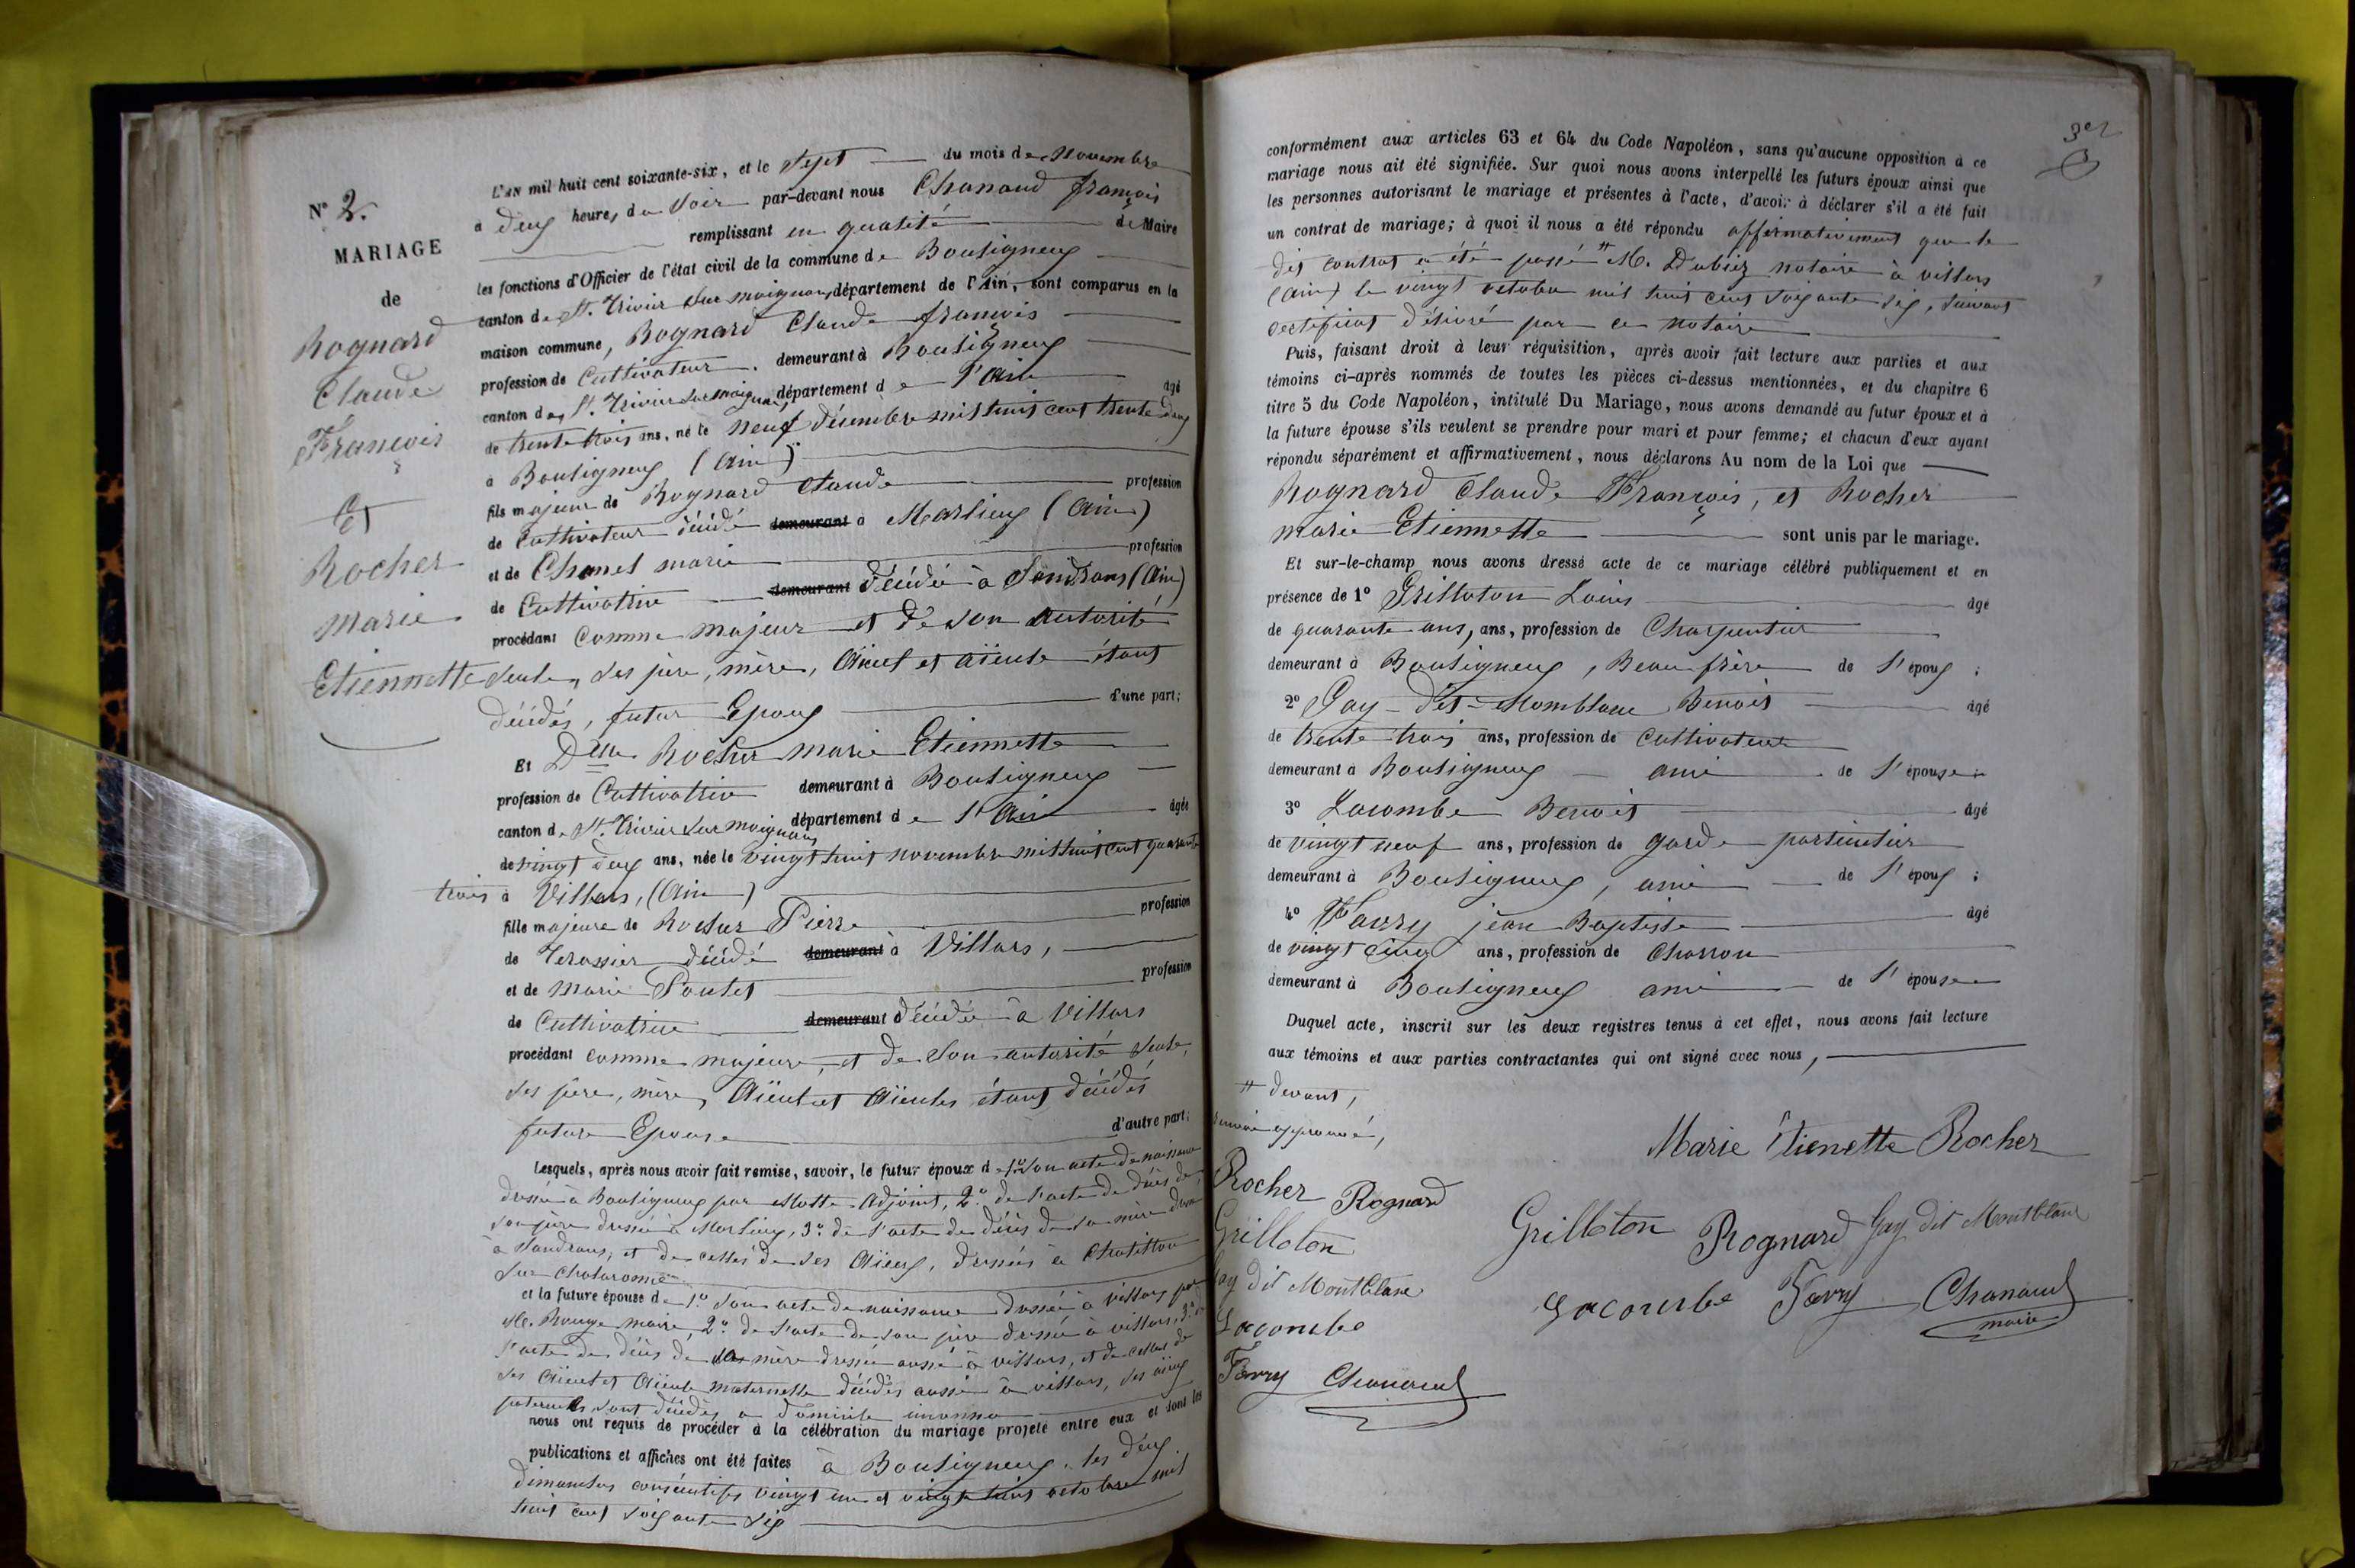 N° 2.
MARIAGE
de
Rognard
Claude
François
Et
Rocher
Marie
Etiennette
L'AN mil huit cent soixante-six, et le Sept du mois de Novembre
à deux heures du Soir par-devant nous Chanaud françois
remplissant en qualité de Maire
les fonctions d'Officier de l'état civil de la commune de Bouligneux
canton de St. Trivier Sur moignans département de l'Ain, sont comparus en la
maison commune, Rognard Claude françois
profession de Cultivateur, demeurant à Bouligneux
canton de St. Trivier Sur moignans département de l'Ain âgé
de trente trois ans, né le neuf décembre mil huit cent trente deux
à Bouligneux (Ain)
fils majeur de Rognard Claude profession
de Cultivateur décédé demeurant à Marlieux (Ain)
et de Chanel marie profession
de Cultivatrice demeurant décédée à Sandrans (Ain)
procédant Comme majeur et de son autorité
seule, ses père, mère, Aïeul et aïeule étant
décédés, futur Epoux d'une part;
Et Delle Rocher marie Etiennette
profession de Cultivatrice demeurant à Bouligneux
canton de St. Trivier Sur moignans département de l'Ain âgée
de vingt deux ans, née le vingt huit novembre mil huit cent quarante
trois à Villars, (Ain)
fille majeure de Rocher Pierre profession
de Terassier décédé demeurant à Villars,
et de Marie Poulet profession
de Cultivatrice demeurant décédée à Villars
procédant comme majeure, et de son autorité seule,
ses père, mère, Aïeul et Aïeules étant décédés
future Epouse d'autre part;
Lesquels, après nous avoir fait remise, savoir, le futur époux de 1° Son acte de naissance
dressé à Bouligneux par Motte Adjoint, 2° de l'acte de décès de
son père dressé à Marlieux, 3° de l'acte de décès de sa mère dressé
à Sandrans, et de celles de ses Aïeux, dressés à Chatillon
sur Chalaronne
et la future épouse de 1° Son acte de naissance dressé à villars par
M. Rouge maire, 2° de l'acte de son père dressé à villars, 3° de
l'acte de décès de sa mère dressé aussi à villars, et de celles de
ses Aïeul et Aïeule maternelle décédés aussi à villars, ses aïeux
paternels sont décédés à domicile inconnu
nous ont requis de procéder à la célébration du mariage projeté entre eux et dont les
publications et affiches ont été faites à Bouligneux, les deux
dimanches consécutifs vingt un et vingt huit octobre mil
huit cent soixante six
conformément aux articles 63 et 64 du Code Napoléon, sans qu'aucune opposition à ce
mariage nous ait été signifiée. Sur quoi nous avons interpellé les futurs époux ainsi que
les personnes autorisant le mariage et présentes à l'acte, d'avoir à déclarer s'il a été fait
un contrat de mariage; à quoi il nous a été répondu affirmativement que le
dit contrat a été passé # M. Dubiez notaire à villars
(ain) le vingt octobre mil huit cent soixante six, suivant
certificat délivré par ce notaire
Puis, faisant droit à leur réquisition, après avoir fait lecture aux parties et aux
témoins ci-après nommés de toutes les pièces ci-dessus mentionnées, et du chapitre 6
titre 5 du Code Napoléon, intitulé Du Mariage, nous avons demandé au futur époux et à
la future épouse s'ils veulent se prendre pour mari et pour femme; et chacun d'eux ayant
répondu séparément et affirmativement, nous déclarons Au nom de la Loi que
Rognard Claude François, et Rocher
Marie Etiennette sont unis par le mariage.
Et sur-le-champ nous avons dressé acte de ce mariage célébré publiquement et en
présence de 1° Grilloton Louis âgé
de quarante ans, ans, profession de Charpentier
demeurant à Bouligneux, Beau frère de l'époux;
2° Gay-dit-Momblanc Benoit âgé
de trente trois ans, profession de Cultivateur
demeurant à Bouligneux ami de l'épouse;
3° Lacombe Benoit âgé
de vingt neuf ans, profession de garde particulier
demeurant à Bouligneux, ami de l'époux;
4° Favry jean Baptiste âgé
de vingt cinq ans, profession de Charron
demeurant à Bouligneux ami de l'épouse
Duquel acte, inscrit sur les deux registres tenus à cet effet, nous avons fait lecture
aux témoins et aux parties contractantes qui ont signé avec nous,
# devant,
renvoi approuvé,
Rocher Rognard
Grilloton
Gay dit Montblanc
Lacombe
Favry Chanaud
Marie Etienette Rocher
Grilloton Rognard Gay dit Montblanc
Lacombe Favry Chanaud
maire